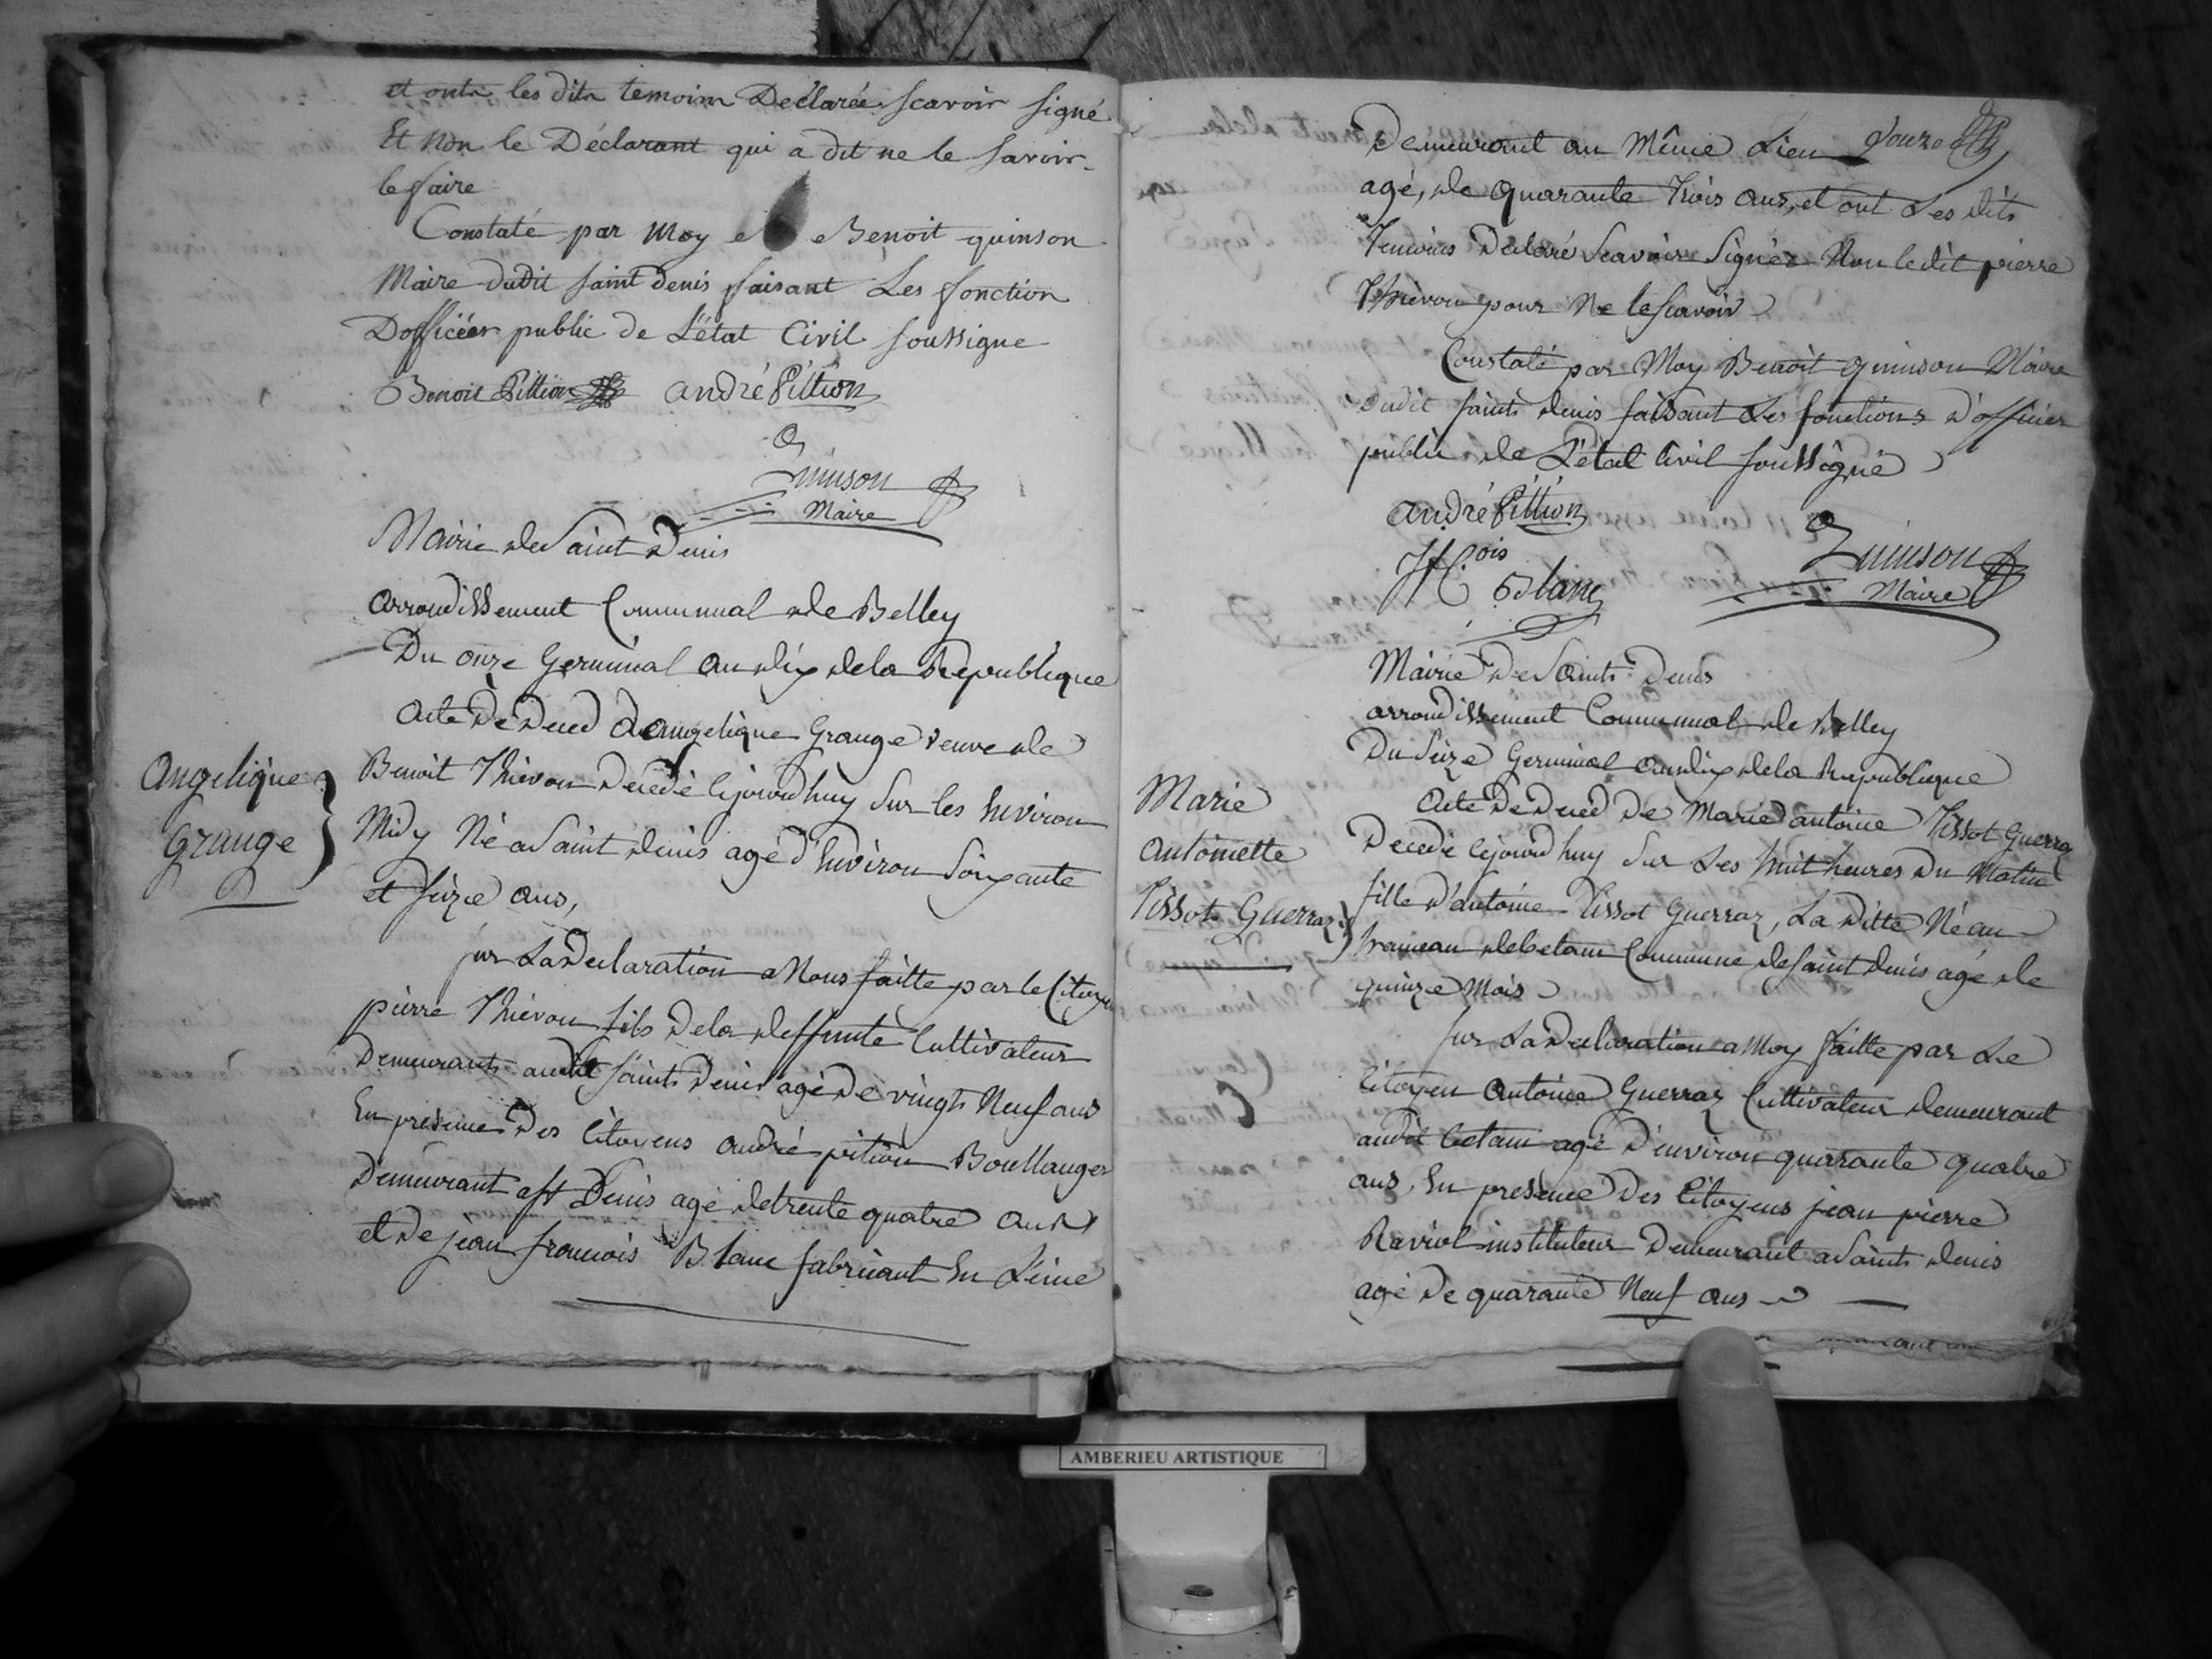 et ontn les ditn temoim Declarée scavoir signé
Et Non le Déclarant qui a dit ne le savoir
le faire
Constaté par moy Benoit quinson
Maire dudit saint denis faisant Les fonction
Dofficéer public de L'état Civil soussigne
Benoit Pittion andré Pittion
Quinson
Maire
Mairie de Saint Denis
arrondissement Communal de Belley
Du onze Germinal an dix dela Republique
Acte De Deced d'angelique Grange veuve de
Angelique
Grange
Benoit Thievon Decedé cejourdhuy sur les hnviron
Midy Né a Saint denis agé d'hnviron Soixante
et seize ans,
sur La Declaration a Nous faitte par le Citoyen
pierre Thievon fils dela deffunte Cultivateur
Demeurants audit saints Denis agé De vingts Neuf ans
En presence Des Citoyens andré pition Boullanger
Demeurant a st Denis agé de trente quatre ans
et De jean francois Blanc fabricant En Leine
Demeurant au Même Lieu
agé, de quarante trois ans, et ont Les dits
Temoins Declaré Scavoir Signér Non ledit pierre
Thievon pour Ne le scavoir
Constaté par Moy Benoit quinson Maire
dudit saints denis faisant Les fonctions D'officier
public de L'état Civil soussigné
andré Pittion
JFcois Blanc
Quinson
Maire
Mairie De Saints Denis
arrondissement Communal de Belley
Du Seize Germinal an dix dela Republique
Acte De Deced De Marie antoine Tissot Guerraz
Marie
Antoinette
Tissot Guerraz
Decedé cejourdhuy sur Les huit heures Du Matin
fille D'antoine Tissot Guerraz, La ditte Né au
hameau de Commune de saint denis agé de
quinze Mois
sur La Declaration a Moy faitte par Le
Citoyen Antoine Guerraz Cultivateur demeurant
audit agé D'environ quarante quatre
ans, En presence Des Citoyens jean pierre
Raviol instituteur Demeurant a Saints denis
agé De quarante Neuf ans
AMBERIEU ARTISTIQUE